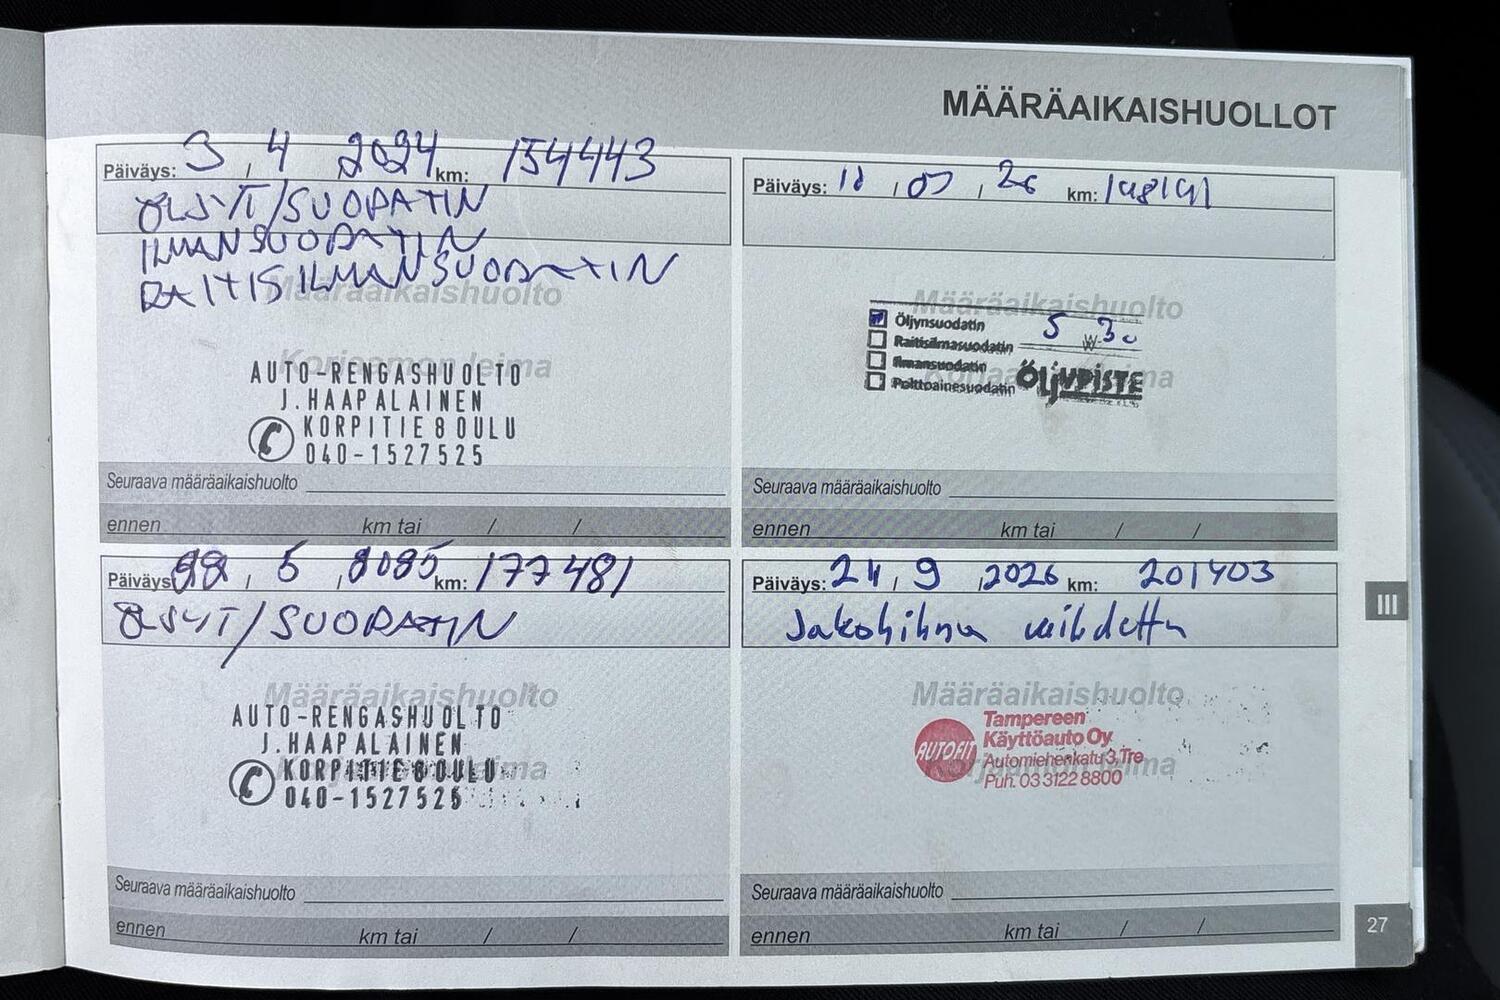 MÄÄRÄAIKAISHUOLLOT
Päiväys: 3 , 4 2024 km: 154443
ÖLJYT/SUODATIN
ILMANSUODATIN
RAITISILMANSUODATIN
Määräaikaishuolto
Korjaamon leima
AUTO-RENGASHUOLTO
J.HAAPALAINEN
KORPITIE 8 OULU
040-1527525
Seuraava määräaikaishuolto
ennen km tai / /
Päiväys: , , 26 km:
Määräaikaishuolto
Öljynsuodatin 5 W 30
Raitisilmasuodatin
Ilmansuodatin
Polttoainesuodatin ÖLJYPISTE
Seuraava määräaikaishuolto
ennen km tai / /
Päiväys: 22 , 5 , 2025 km: 177481
ÖLJYT/SUODATIN
Määräaikaishuolto
AUTO-RENGASHUOLTO
J.HAAPALAINEN
KORPITIE 8 OULU
040-1527525
Seuraava määräaikaishuolto
ennen km tai / /
Päiväys: 24 , 9 , 2026 km: 201403
Jakohihna vaihdettu
Määräaikaishuolto
AUTOFIT
Tampereen
Käyttöauto Oy
Automiehenkatu 3, Tre
Puh. 03 3122 8800
Seuraava määräaikaishuolto
ennen km tai / /
III
27